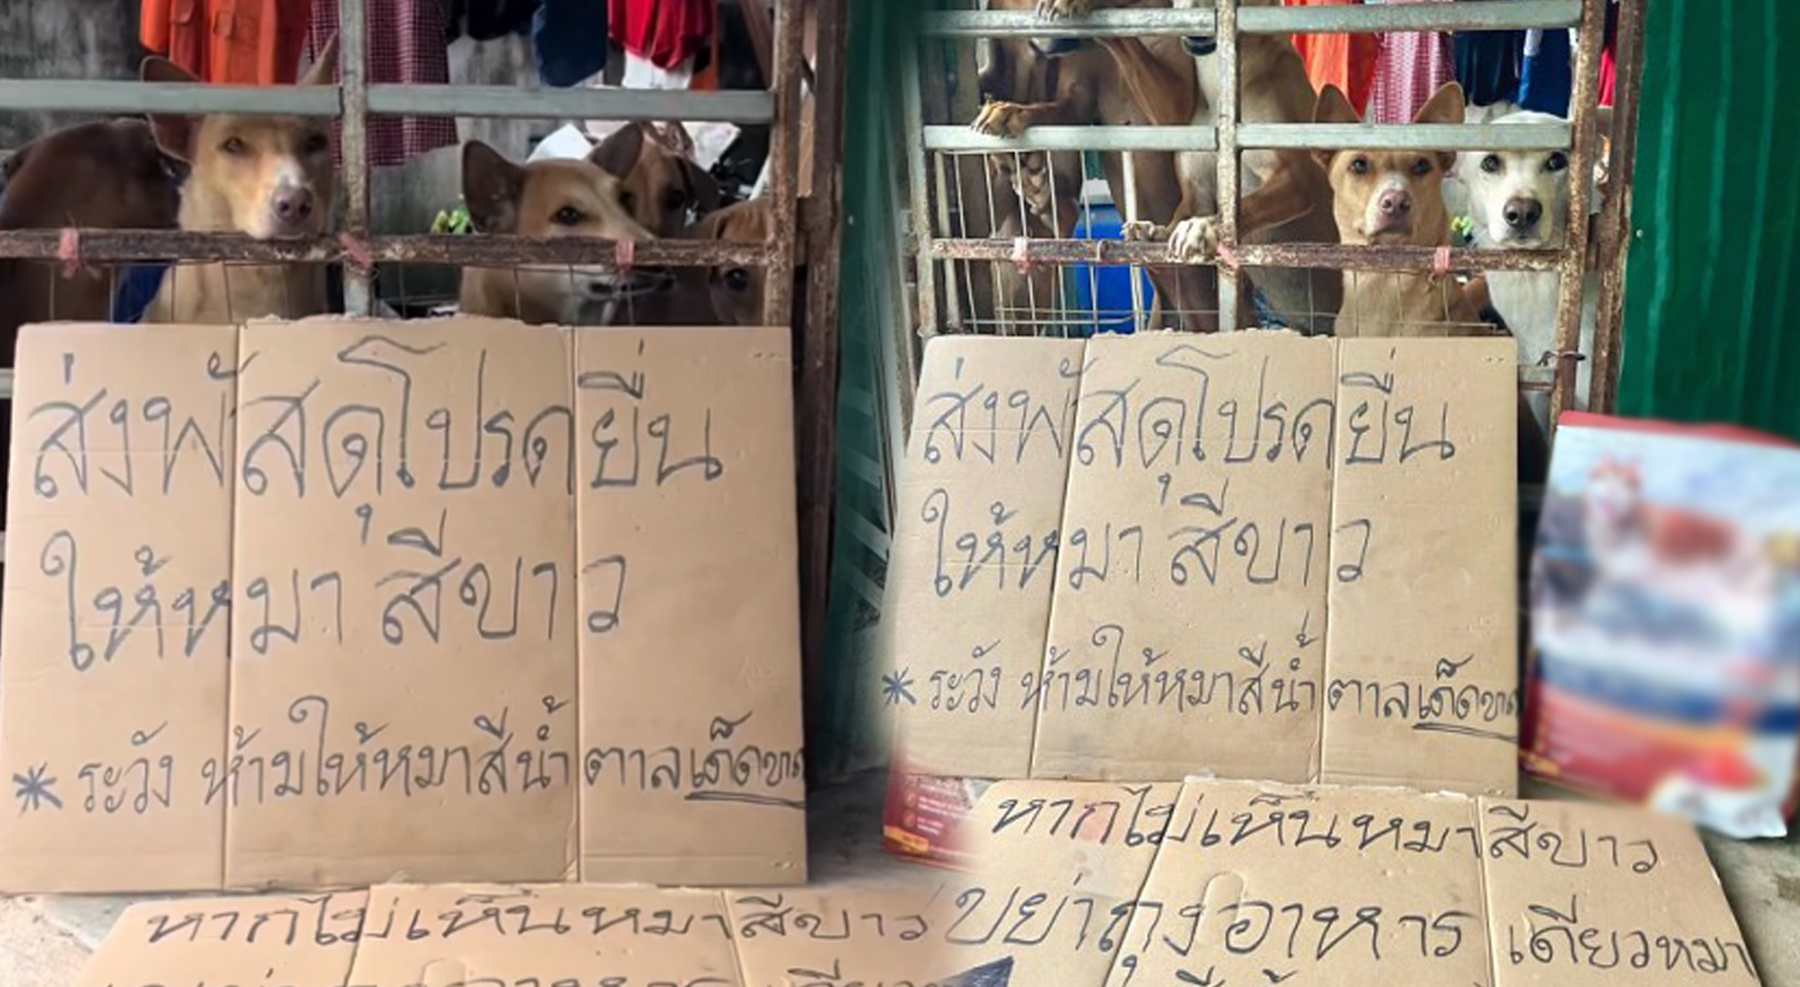 ส่งพัสดุโปรดยื่น
ให้หมาสีขาว
* ระวัง ห้ามให้หมาสีน้ำตาลเด็ดขาด
หากไม่เห็นหมาสีขาว
ส่งพัสดุโปรดยื่น
ให้หมาสีขาว
* ระวัง ห้ามให้หมาสีน้ำตาลเด็ดขาด
หากไม่เห็นหมาสีขาว
ขย่าถุงอาหาร เดี่ยวหมา